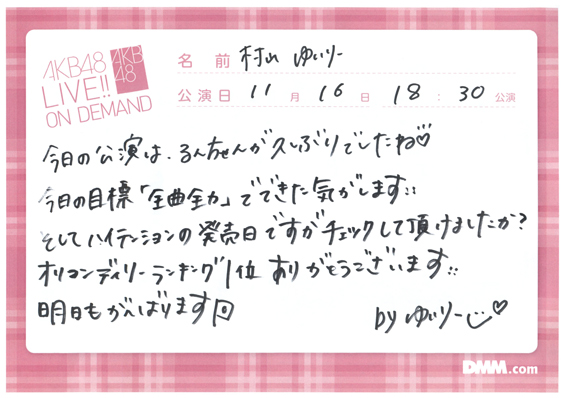 AKB48
LIVE!!
ON DEMAND
AKB
48
名前 村山 ゆいりー
公演日 11月16日 18:30公演
今日の公演は、るんちゃんが久しぶりでしたね♡
今日の目標「全曲全力」でできた気がします
そしてハイテンションの発売日ですがチェックして頂けましたか?
オリコンディリーランキング1位 ありがとうございます
明日もがんばります
by ゆいりー♡
DMM.com